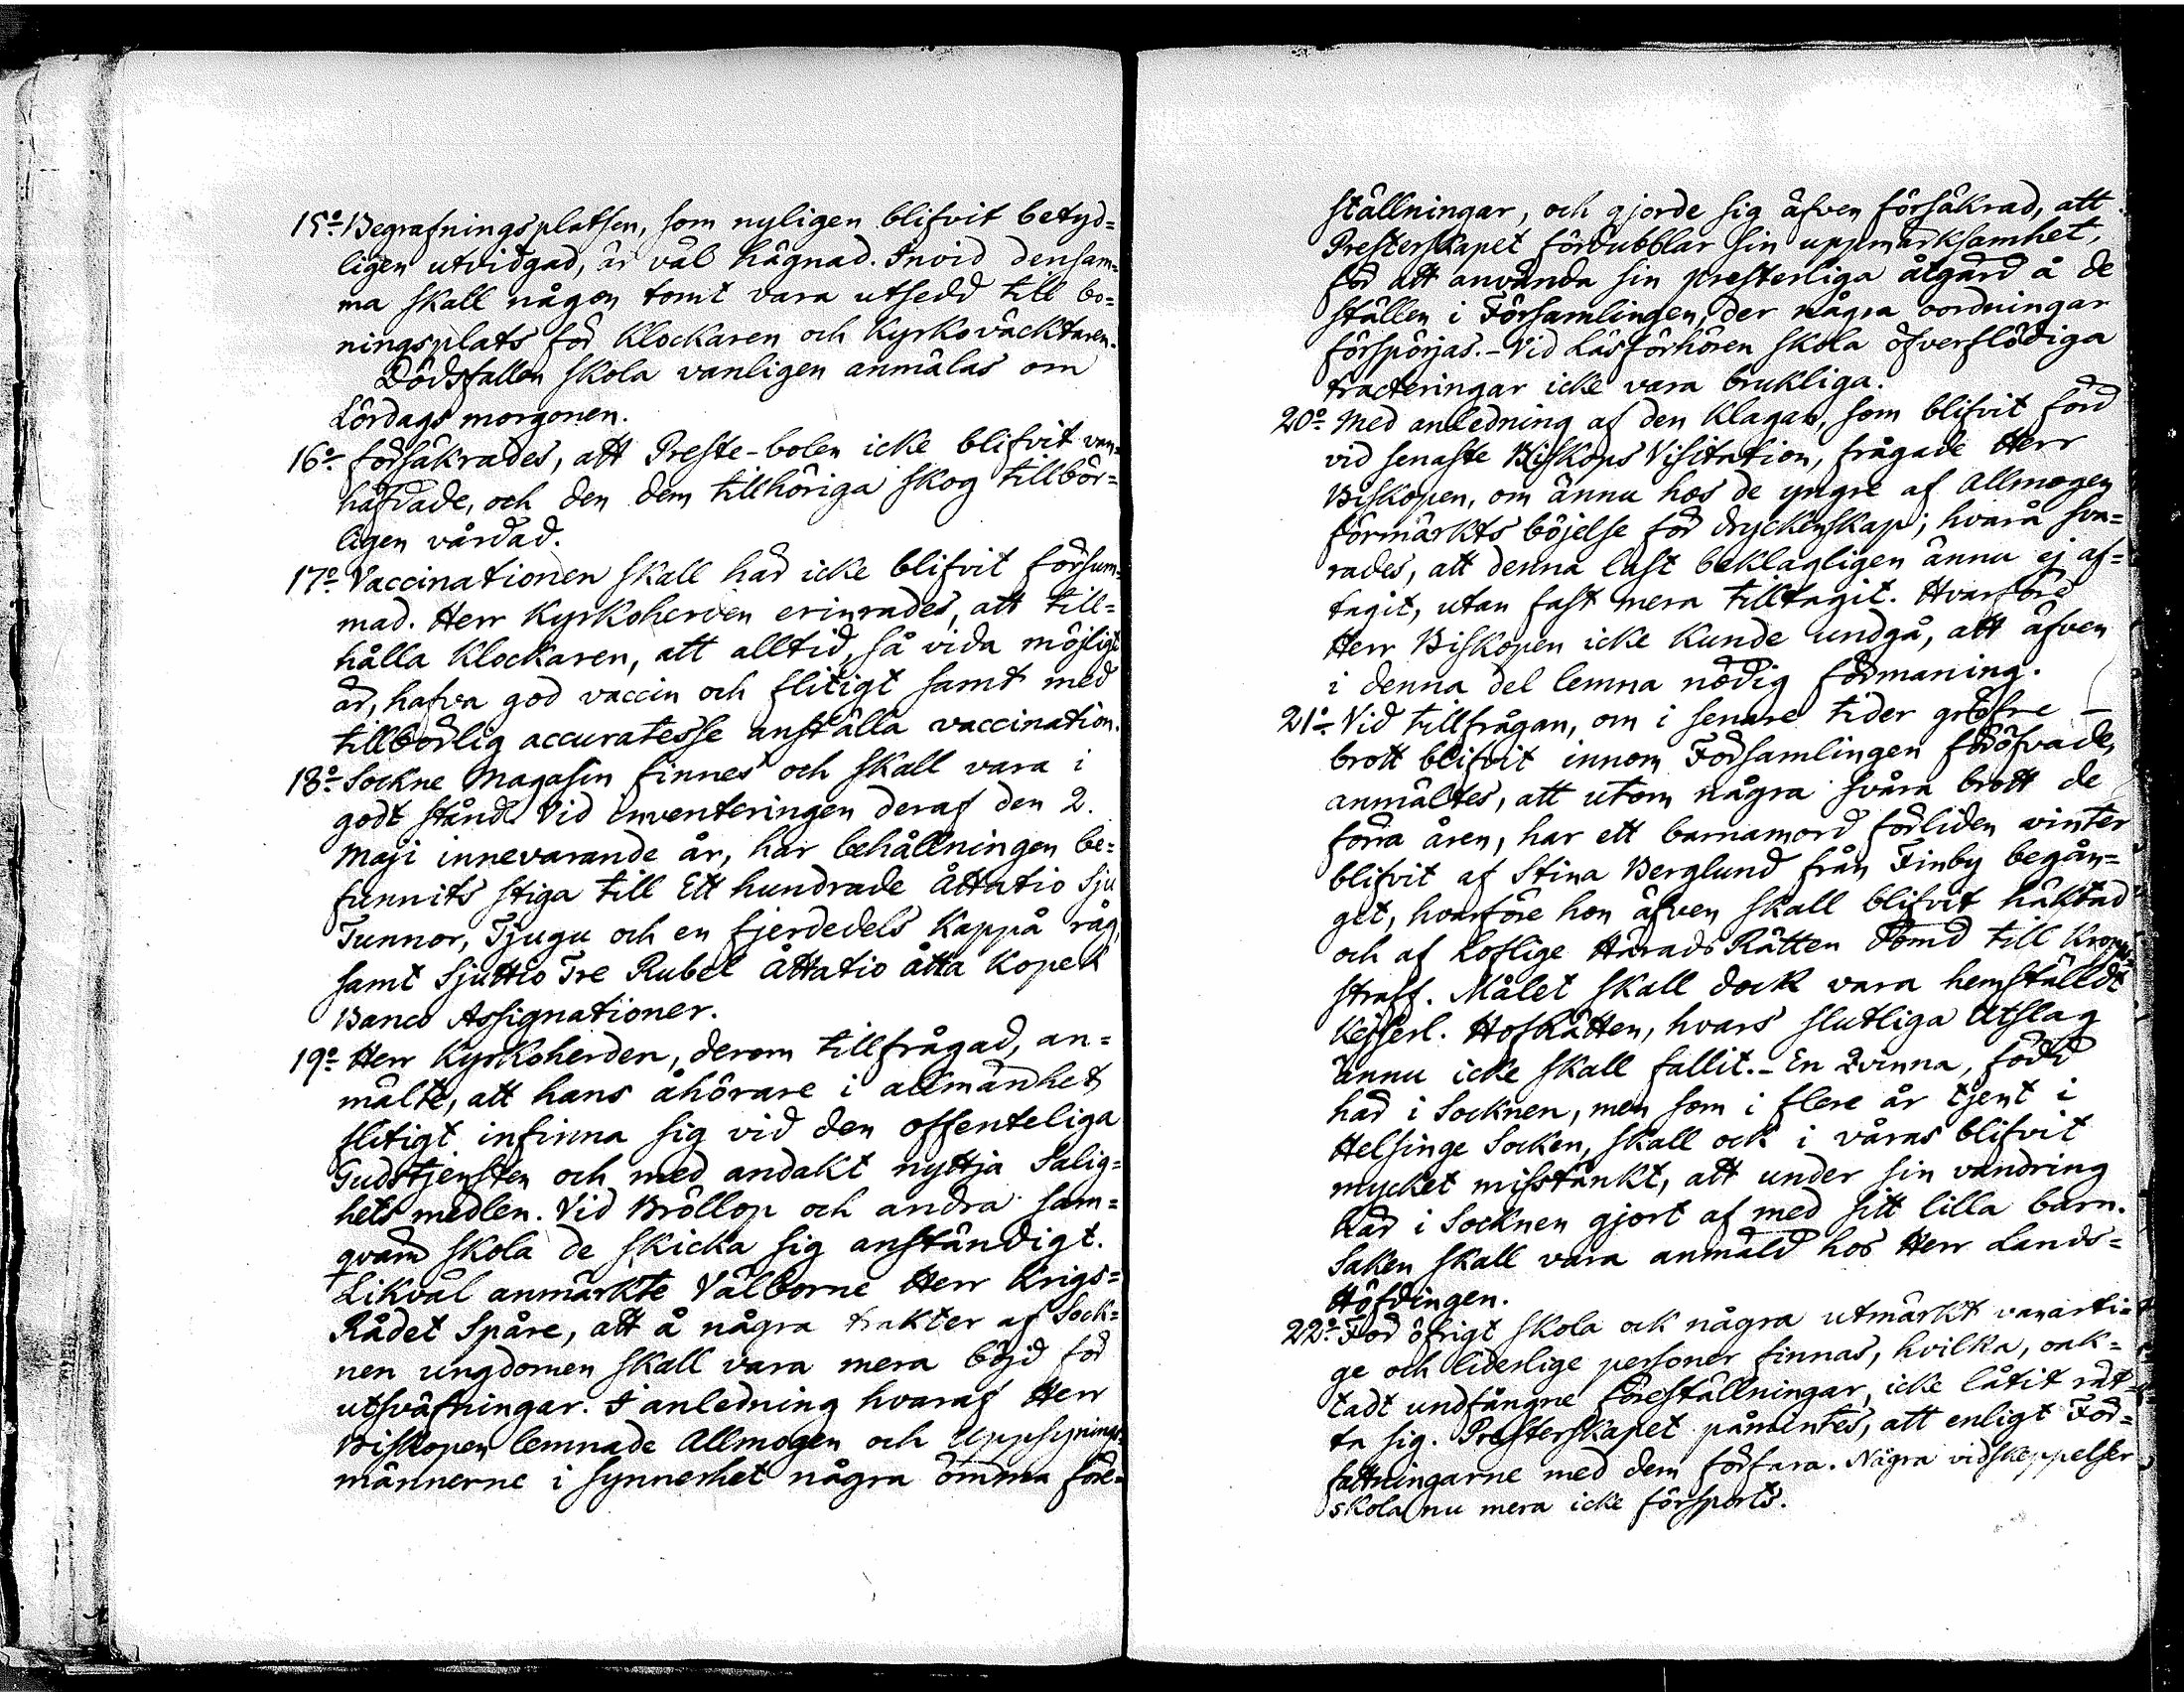 15:o Begrafningsplatsen, som nyligen blifvit betyd=
ligen utvidgad, är väl hägnad. Invid densam=
ma skall någon tomt vara utsedd till bo=
ningsplats för Klockaren och Kyrkoväcktaren.
Dödsfallen skola vanligen anmälas om
Lördags morgonen.
16:o försäkrades, att Preste-bolen icke blifvit van=
häfdade, och den dem tillhöriga skog tillbör=
ligen vårdad.
17:o Vaccinationen skall här icke blifvit försum=
mad. Herr Kyrkoherden erinrades, att till=
hålla Klockaren, att alltid, så vida möjligt
är, hafva god vaccin och flitigt samt med
tillbörlig accuratesse anställa vaccination.
18:o Sockne Magasin finnes och skall vara i
godt stånd. Vid inventeringen deraf den 2.
Maji innevarande år, har behållningen be=
funnits stiga till Ett hundrade Åttatio Sju
Tunnor, Tjugu och en fjerdedels Kappå råg,
samt Sjuttio Tre Rubel Åttatio åtta Kopek
Banco Assignationer.
19:o Herr Kyrkoherden, derom tillfrågad, an=
mälte, att hans åhörare i allmänhet
flitigt infinna sig vid den offenteliga
Gudstjensten och med andakt nyttja Salig=
hets medlen. Vid Bröllop och andra sam=
qväm skola de skicka sig anständigt.
Likväl anmärkte Välborne Herr Krigs=
Rådet Spåre, att å några trakter af Sock=
nen ungdomen skall vara mera böjd för
utsväfningar. I anledning hvaraf Herr
Biskopen lemnade Allmogen och Uppsynings=
männerne i synnerhet några ömma före=
ställningar, och gjorde sig äfven försäkrad, att
Presterskapet fördubblar sin uppmärksamhet,
för att använda sin presterliga åtgärd å de
ställen i Församlingen, der några oordningar
förspörjas. - Vid Läsförhören skola öfverflödiga
tracteringar icke vara brukliga.
20:o Med anledning af den Klagan, som blifvit förd
vid senaste Biskops Visitation, frågade Herr
Biskopen, om ännu hos de yngre af Allmogen
förmärkts böjelse för dryckenskap; hvarå sva=
rades, att denna last beklagligen ännu ej af=
tagit, utan fast mera tilltagit. Hvarföre
Herr Biskopen icke kunde undgå, att äfven
i denna del lemna nödig förmaning.
21:o Vid tillfrågan, om i senare tider gröfre -
brott blifvit innom Församlingen föröfvade,
anmältes, att utom några svåra brott de
förra åren, har ett barnamord förliden winter
blifvit af Stina Berglund från Finby begån=
get, hvarföre hon äfven skall blifvit häktad
och af Loflige Härads Rätten dömd till Kropps=
straff. Målet skall dock vara hemstälдt
Kejserl. HofRätten, hvars slutliga Utslag
ännu icke skall fallit. - En Qvinna, född
här i Socknen, men som i flere år tjent i
Helsinge Socken, skall ock i våras blifvit
mycket misstänkt, att under sin vandring
här i Socknen gjort af med sitt lilla barn.
Saken skall vara anmäld hos Herr Lands=
Höfdingen.
22:o För öfrigt skola ock några utmärkt vanarti=
ge och liderlige personer finnas, hvilka, oak=
tadt undfångne föreställningar, icke låtit rät=
ta sig. Presterskapet påmintes, att enligt För=
fattningarne med dem förfara. Några vidskeppelser
skola nu mera icke försports.